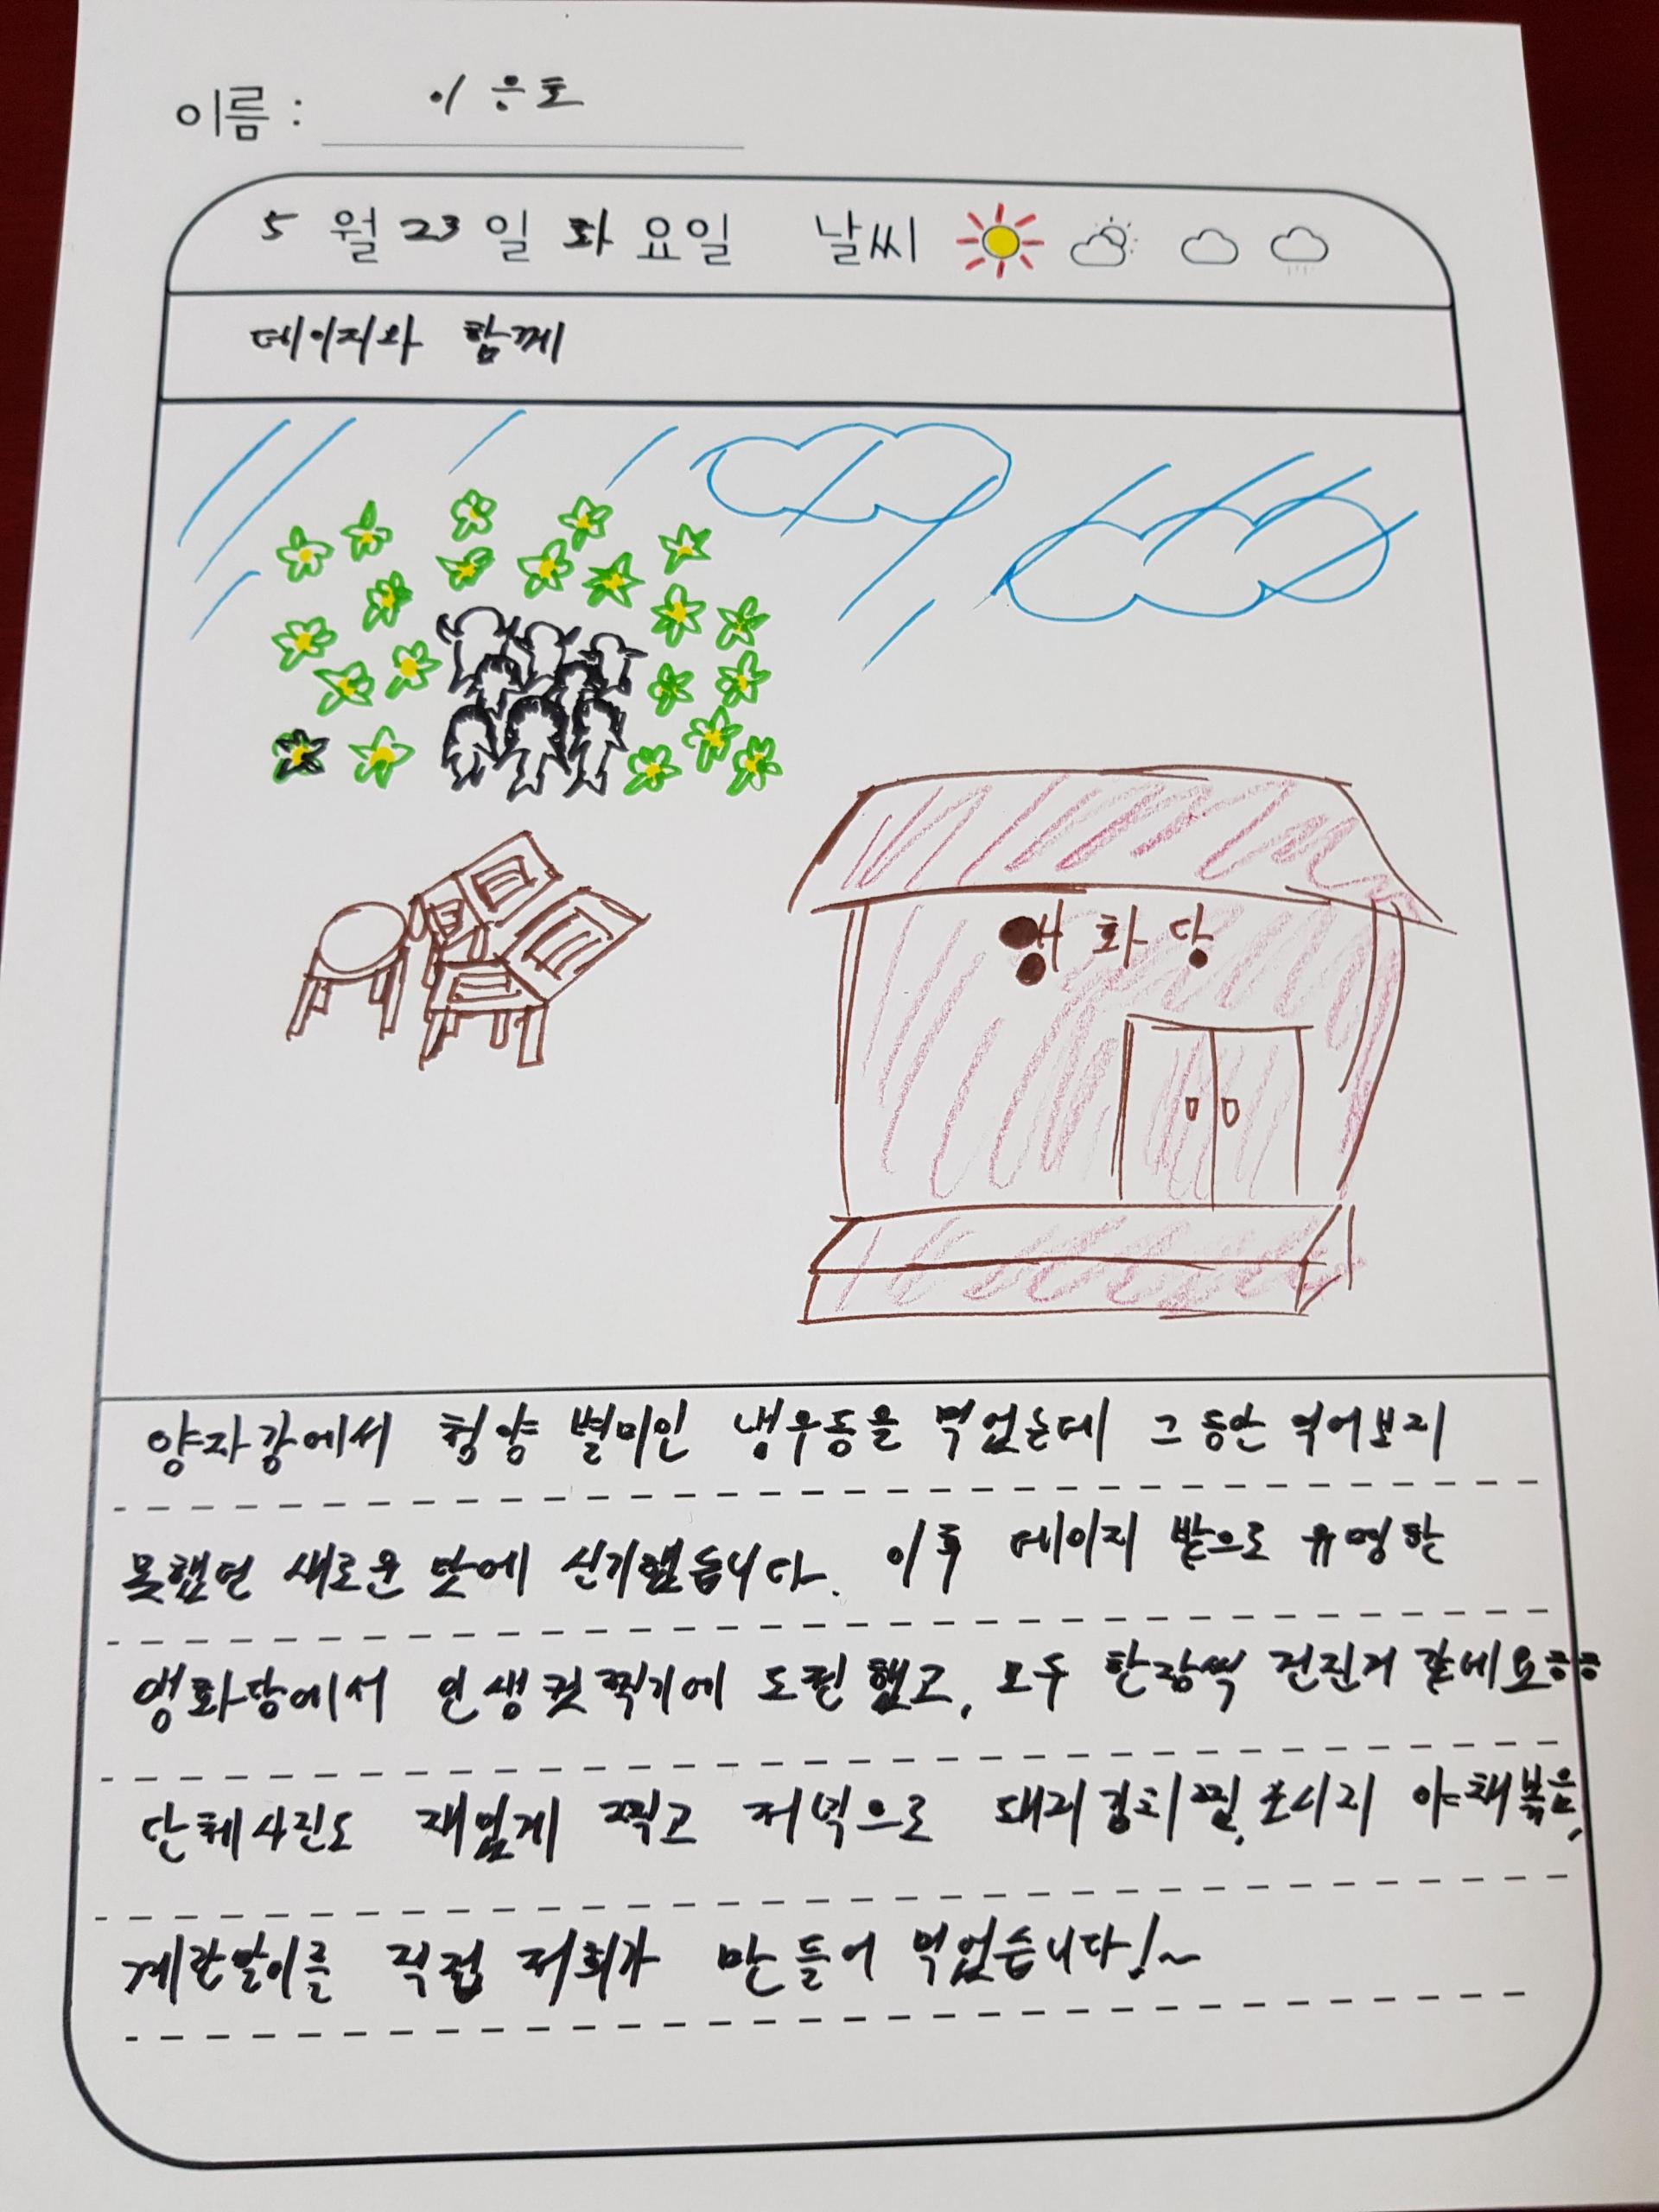 이름 : 이응호
5월 23일 화요일 날씨
데이지와 함께
앵화당
양자강에서 청양 별미인 냉우동을 먹었는데 그동안 먹어보지
못했던 새로운 맛에 신기했습니다. 이후 데이지 밭으로 유명한
앵화당에서 인생컷찍기에 도전했고, 모두 한장씩 건진거 같네요ㅎㅎ
단체사진도 재밌게 찍고 저녁으로 돼지김치찜, 소시지 야채볶음,
계란말이를 직접 저희가 만들어 먹었습니다!~